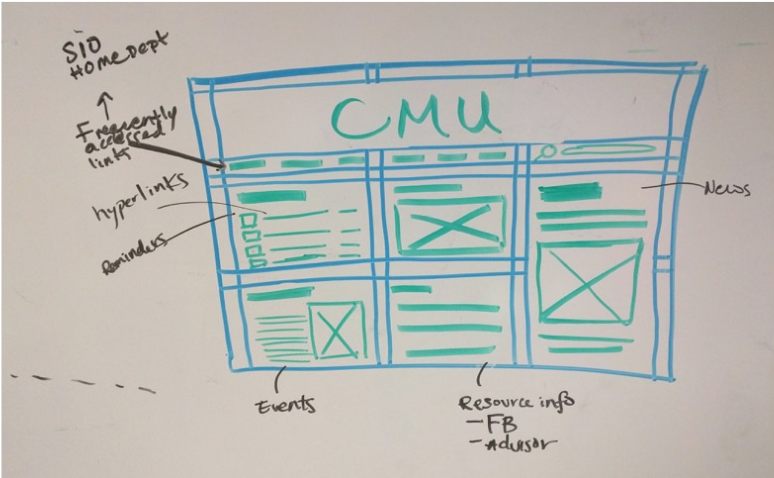 SIO
Home Dept
Frequently
accessed
links
CMU
hyperlinks
Reminders
News
Events
Resource info
- FB
- Advisor